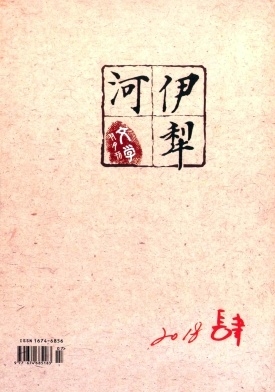 伊犁
河
文学
双月刊
2018 肆
ISSN 1674-6856
07